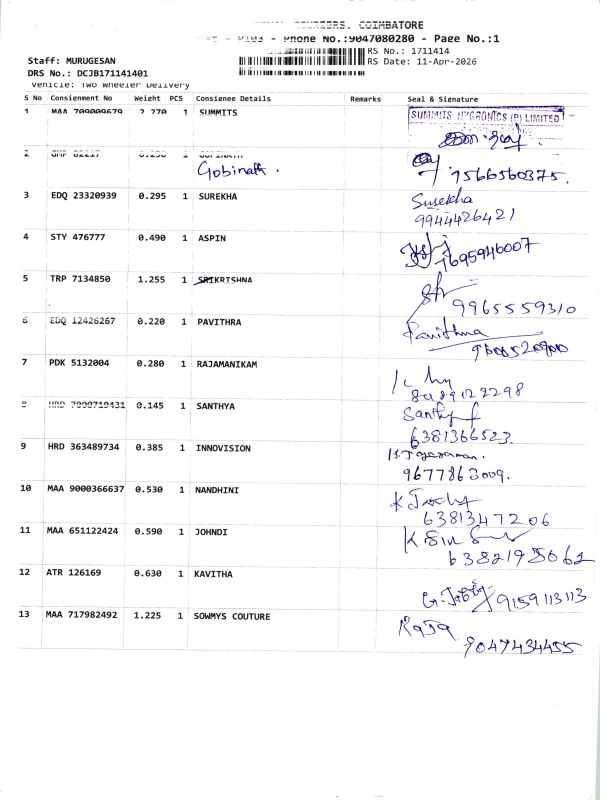 COURIERS, COIMBATORE
Phone No.:9047080280 - Page No.:1
RS No.: 1711414
Staff: MURUGESAN
RS Date: 11-Apr-2026
DRS No.: DCJB171141401
Vehicle: Two Wheeler Delivery
S No Consignment No Weight PCS Consignee Details Remarks Seal & Signature
1 MAA 709009679 2.270 1 SUMMITS SUMMITS HYGRONICS (P) LIMITED
2 1 GOPINATH
Gobinath. 7566560375.
3 EDQ 23320939 0.295 1 SUREKHA Surekha
9944426421
4 STY 476777 0.490 1 ASPIN
7695946007
5 TRP 7134850 1.255 1 SRIKRISHNA
9965559310
6 EDQ 12426267 0.220 1 PAVITHRA Pavithra
7 PDK 5132004 0.280 1 RAJAMANIKAM
8489122298
8 HRD 7000719431 0.145 1 SANTHYA Santhy
6381366523.
9 HRD 363489734 0.385 1 INNOVISION
9677863009.
10 MAA 9000366637 0.530 1 NANDHINI
6381347206
11 MAA 651122424 0.590 1 JOHNDI
12 ATR 126169 0.630 1 KAVITHA
9159113113
13 MAA 717982492 1.225 1 SOWMYS COUTURE Raja
9047434455